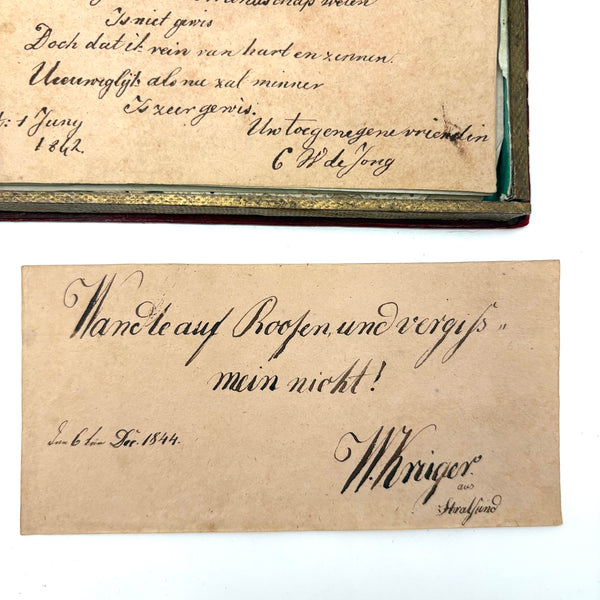 Is niet gewis
Doch dat ik rein van hart en zinnen.
U eeuwiglijk als nu zal minnen
Is zeer gewis.
1 Juny
1842.
Uw toegenegene vriendin
C W de Jong
Wandle auf Roosen, und vergiß-
mein nicht!
den 6ten Dec. 1844.
W. Krüger.
aus
Stralsund